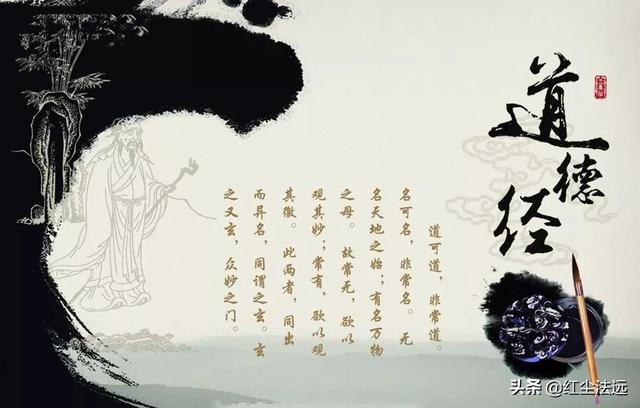 道德经
道可道，非常道。
名可名，非常名。 无
名天地之始；有名万物
之母。 故常无，欲以
观其妙；常有，欲以观
其徼。 此两者，同出
而异名，同谓之玄。玄
之又玄，众妙之门。
头条 @红尘法远